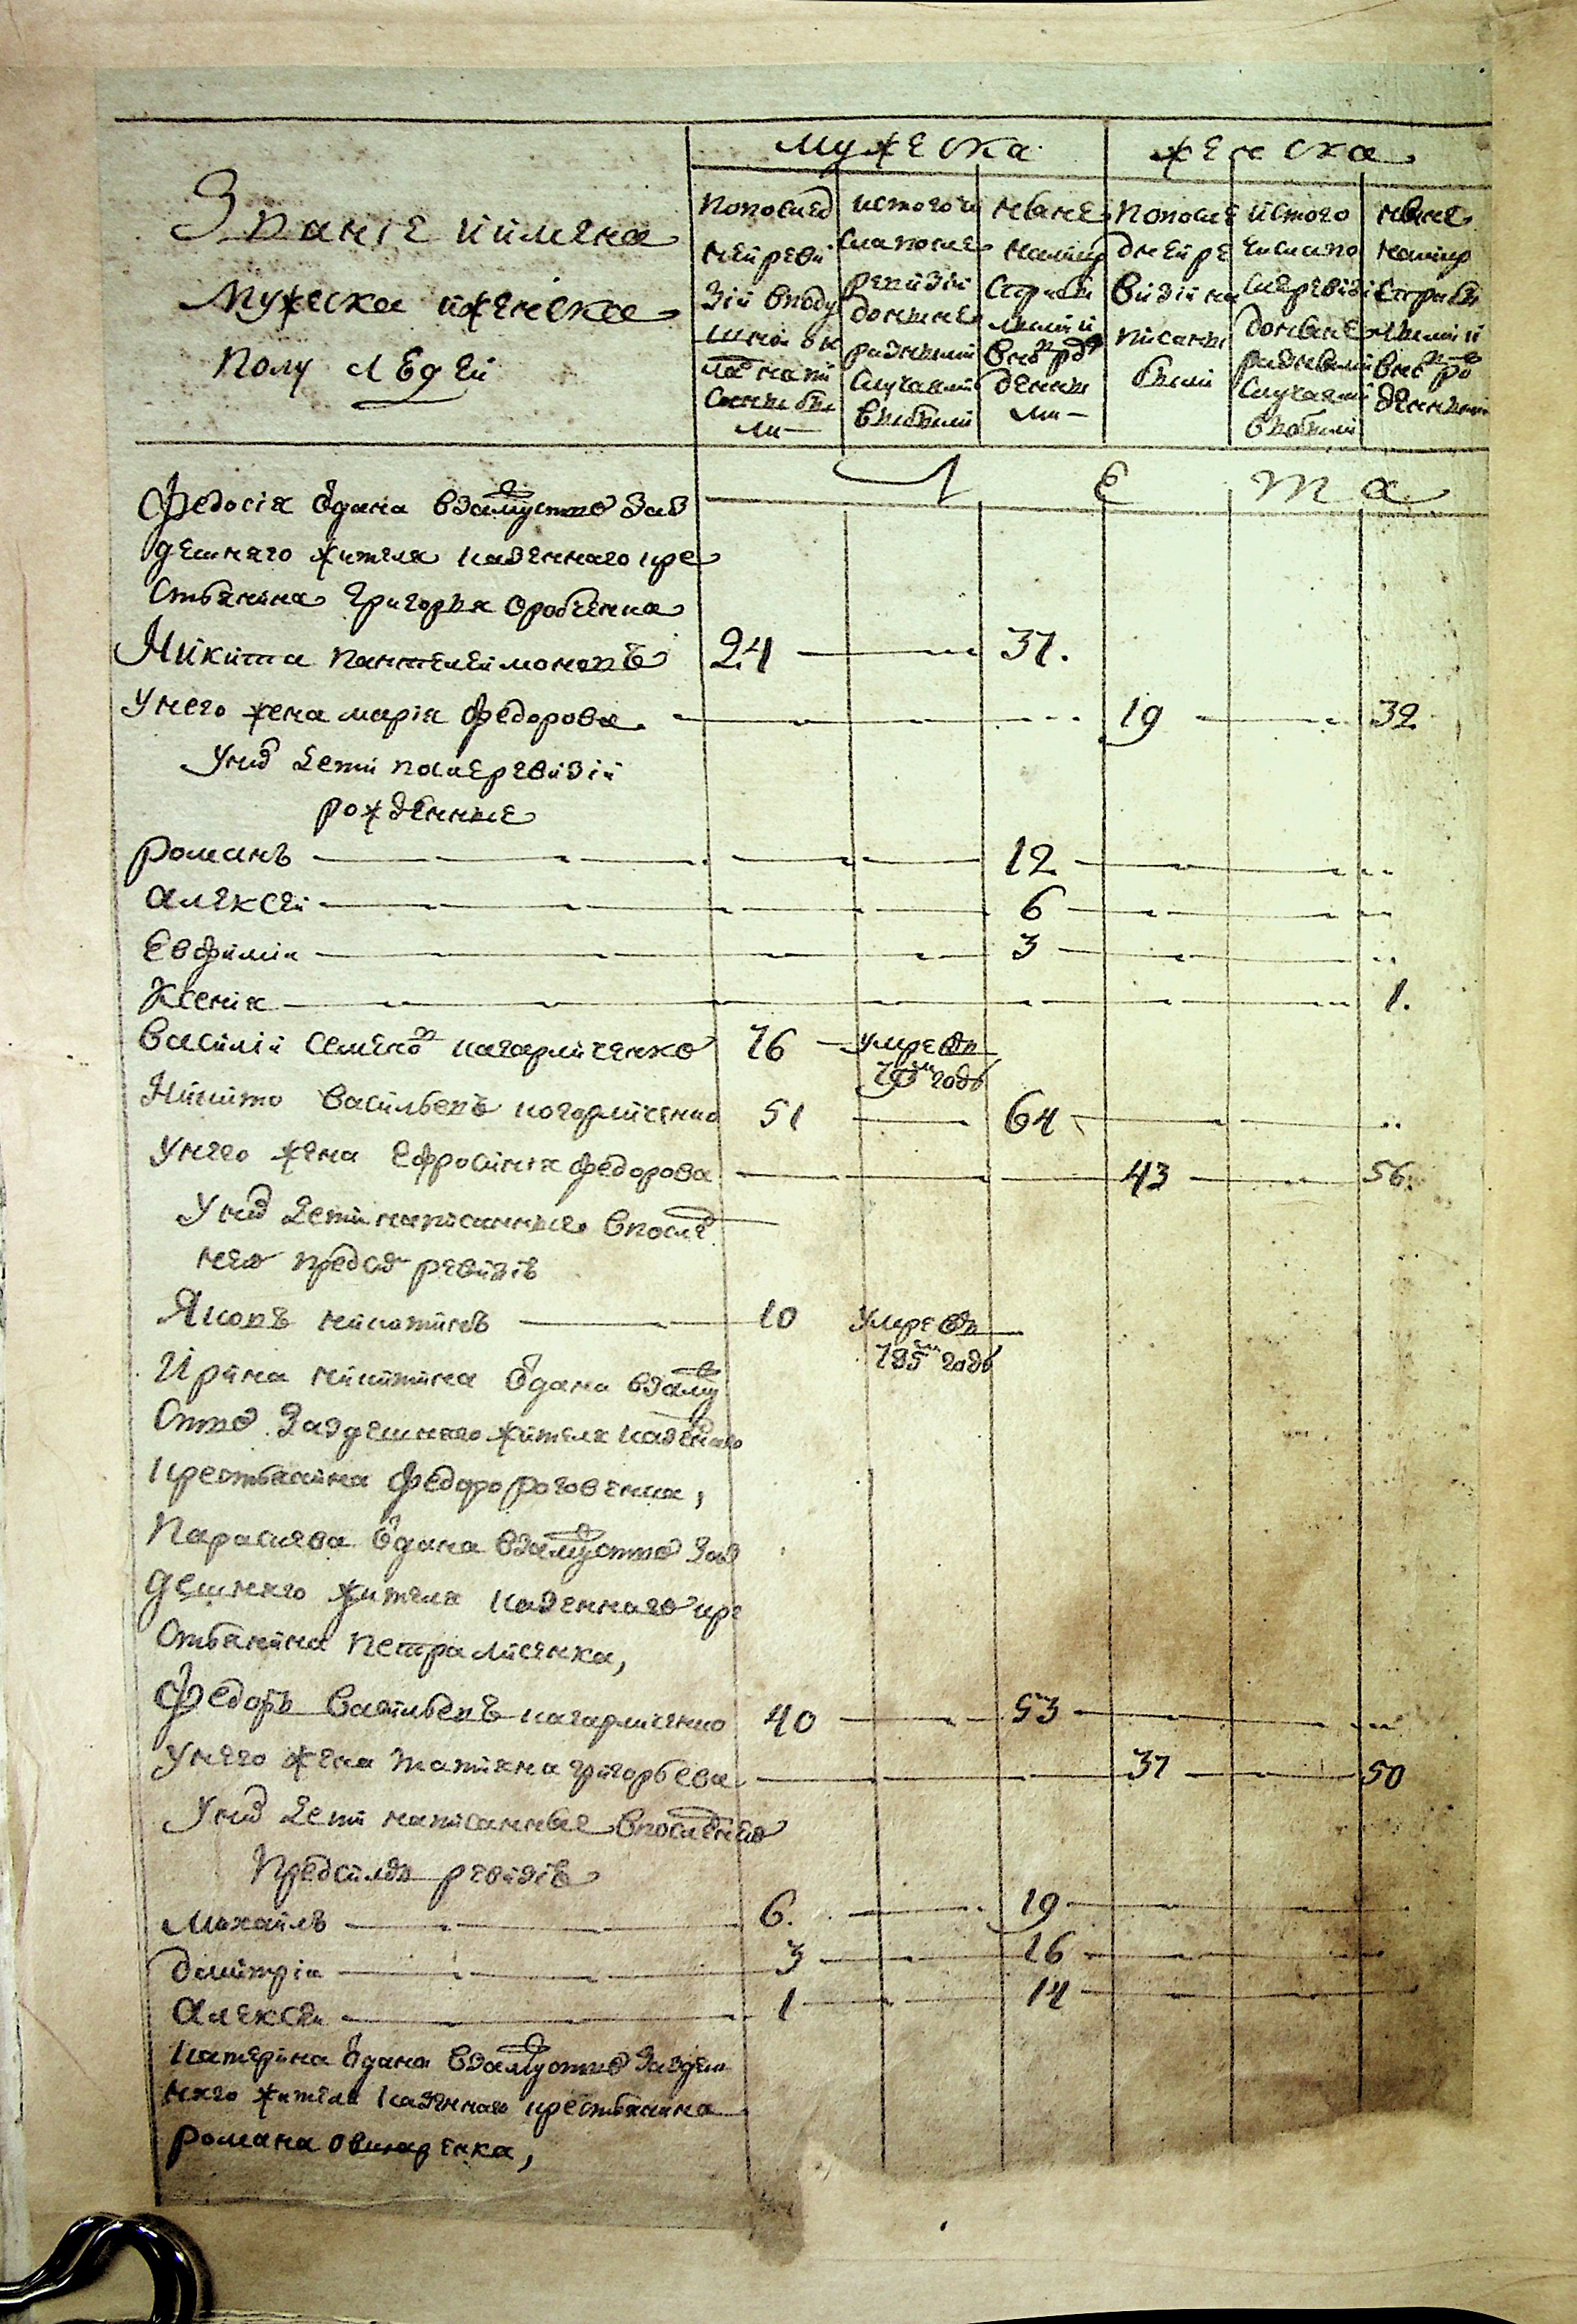 мужеска
женска
Званіе иимена
Мужеска иженска
полу людей
попослед
ней реви
зіи вподу
шной ок
ладъ напи
санны бы
ли
истого чи
сла после
ревизіи
доныне
разными
случаями
выбыли
ныне
налицо
состоитъ
попосле
дней ре
визіи на
писаны
были
истого
числапо
слеревизі
доныне
разными
случаями
выбыли
ныне
налицо
лета
Федосія одана взамуство заз
дешнего жителя казенного кре
стьянина Григорья
Никита пантелеймоновъ 24 37.
Унего жена марія федорова 19 32
Уних дети послеревизіи
рожденные
романъ 12
алексей 6
Евфимія 3
Ксенія 1.
Василій семеновъ кагарличенко 76 умре въ
79м годе
Никита васильевъ кагарличенко 51 64
Унего жена Ефросинія федорова 43 56.
Уних дети написанные впослед
нею предсию ревизіе
Яковъ никитинъ 10 умре въ
785м годе
Ирина никитина одана взаму
ство заздешнего жителя казенного
крестьянина федора роговенка,
Параскева одана взамуство заз
дешнего жителя казенного кре
стьянина петра лисенка,
Федоръ васильевъ кагарличенко 40 53
Унего жена татияна григорьева 37 50
Уних дети написанные впоследнею
предсим ревизіе
михайлъ 6. 19
дмитрія 3 16
алексей 1 14
катерина одана взамуство заздеш
него жителя казенного крестьянина
романа овчаренка,